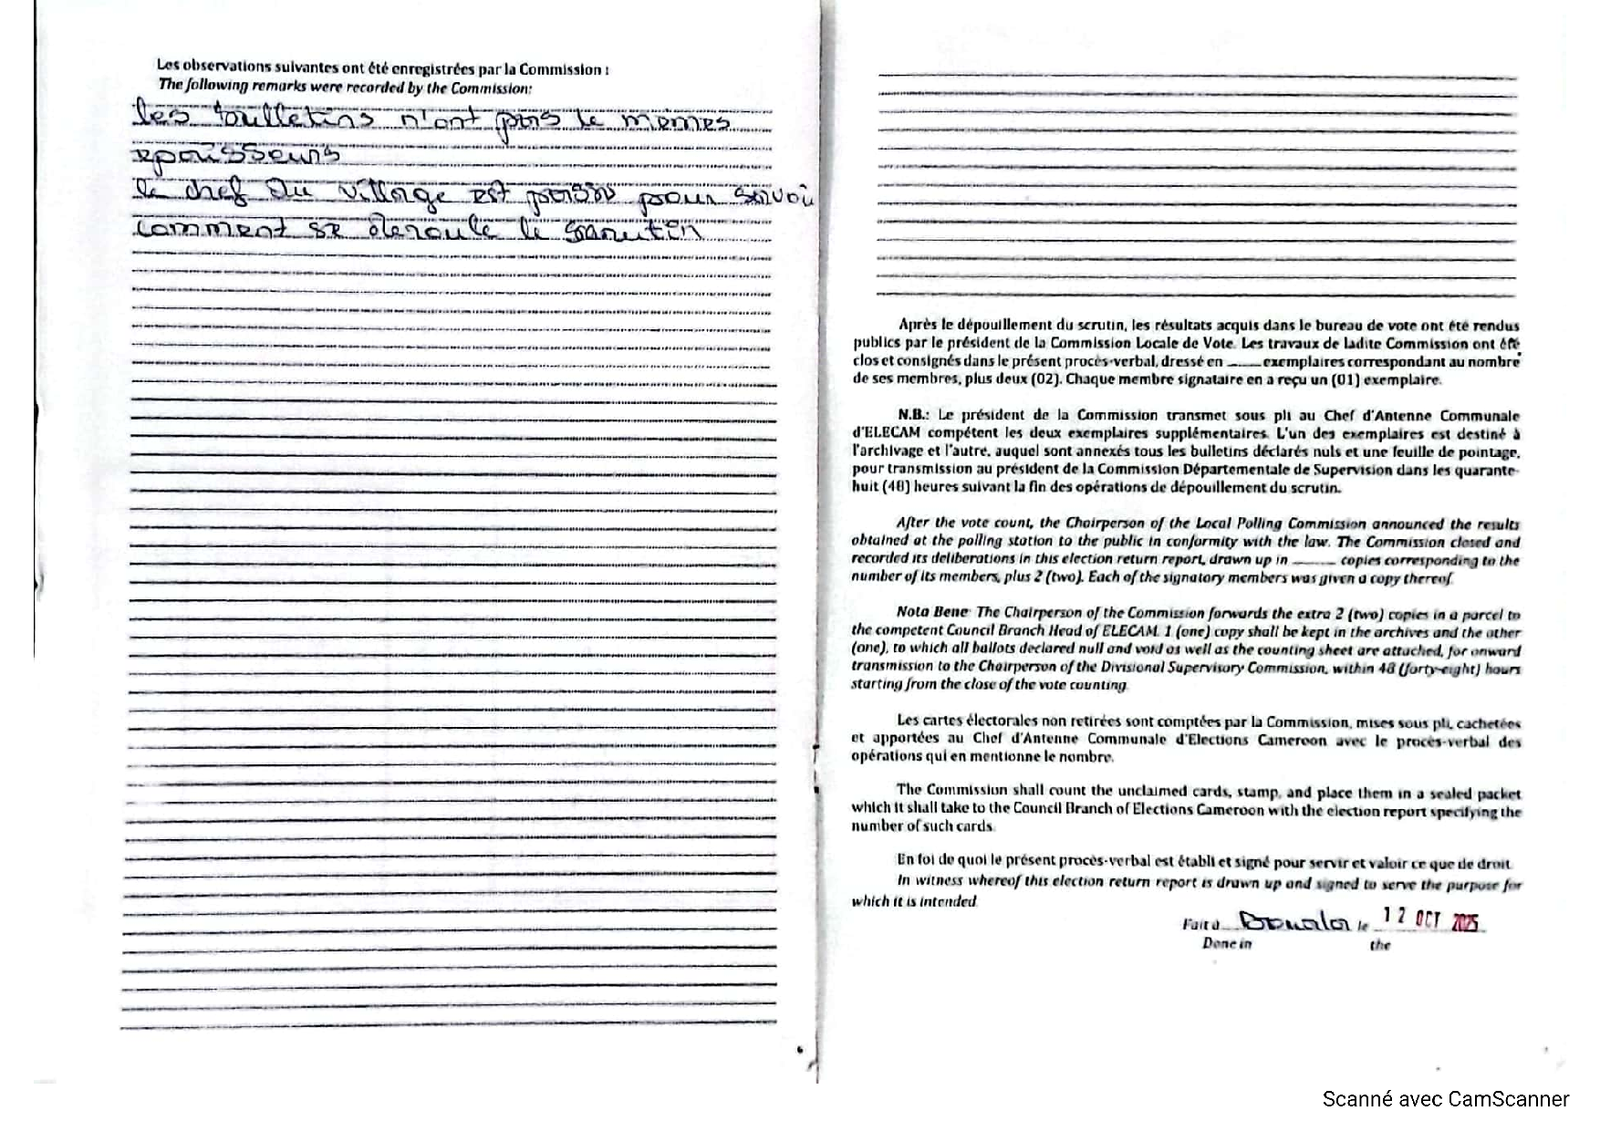 Les observations suivantes ont été enregistrées par la Commission :
The following remarks were recorded by the Commission:
les bulletins n'ont pas le memes
epaisseurs
le chef du village est passé pour savoir
comment se deroule le scrutin
Après le dépouillement du scrutin, les résultats acquis dans le bureau de vote ont été rendus
publics par le président de la Commission Locale de Vote. Les travaux de ladite Commission ont été
clos et consignés dans le présent procès-verbal, dressé en ______ exemplaires correspondant au nombre
de ses membres, plus deux (02). Chaque membre signataire en a reçu un (01) exemplaire.
N.B.: Le président de la Commission transmet sous pli au Chef d'Antenne Communale
d'ELECAM compétent les deux exemplaires supplémentaires. L'un des exemplaires est destiné à
l'archivage et l'autre, auquel sont annexés tous les bulletins déclarés nuls et une feuille de pointage,
pour transmission au président de la Commission Départementale de Supervision dans les quarante-
huit (48) heures suivant la fin des opérations de dépouillement du scrutin.
After the vote count, the Chairperson of the Local Polling Commission announced the results
obtained at the polling station to the public in conformity with the law. The Commission closed and
recorded its deliberations in this election return report, drawn up in ______ copies corresponding to the
number of its members, plus 2 (two). Each of the signatory members was given a copy thereof.
Nota Bene: The Chairperson of the Commission forwards the extra 2 (two) copies in a parcel to
the competent Council Branch Head of ELECAM. 1 (one) copy shall be kept in the archives and the other
(one), to which all ballots declared null and void as well as the counting sheet are attached, for onward
transmission to the Chairperson of the Divisional Supervisory Commission, within 48 (forty-eight) hours
starting from the close of the vote counting.
Les cartes électorales non retirées sont comptées par la Commission, mises sous pli, cachetées
et apportées au Chef d'Antenne Communale d'Elections Cameroon avec le procès-verbal des
opérations qui en mentionne le nombre.
The Commission shall count the unclaimed cards, stamp, and place them in a sealed packet
which it shall take to the Council Branch of Elections Cameroon with the election report specifying the
number of such cards.
En foi de quoi le présent procès-verbal est établi et signé pour servir et valoir ce que de droit.
In witness whereof this election return report is drawn up and signed to serve the purpose for
which it is intended.
Fait à Douala le 12 OCT 2025
Done in the
Scanné avec CamScanner